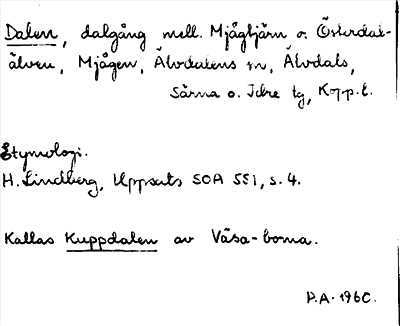 Dalen, dalgång mell. Mjågtjärn o. Österdal-
älven, Mjågen, Älvdalens sn, Älvdals,
Särna o. Idre tg, Kopp. l.
Etymologi.
H. Lindberg, Uppsats SOA 551, s. 4.
Kallas Kuppdalen av Våsa-borna.
P.A. 1960.